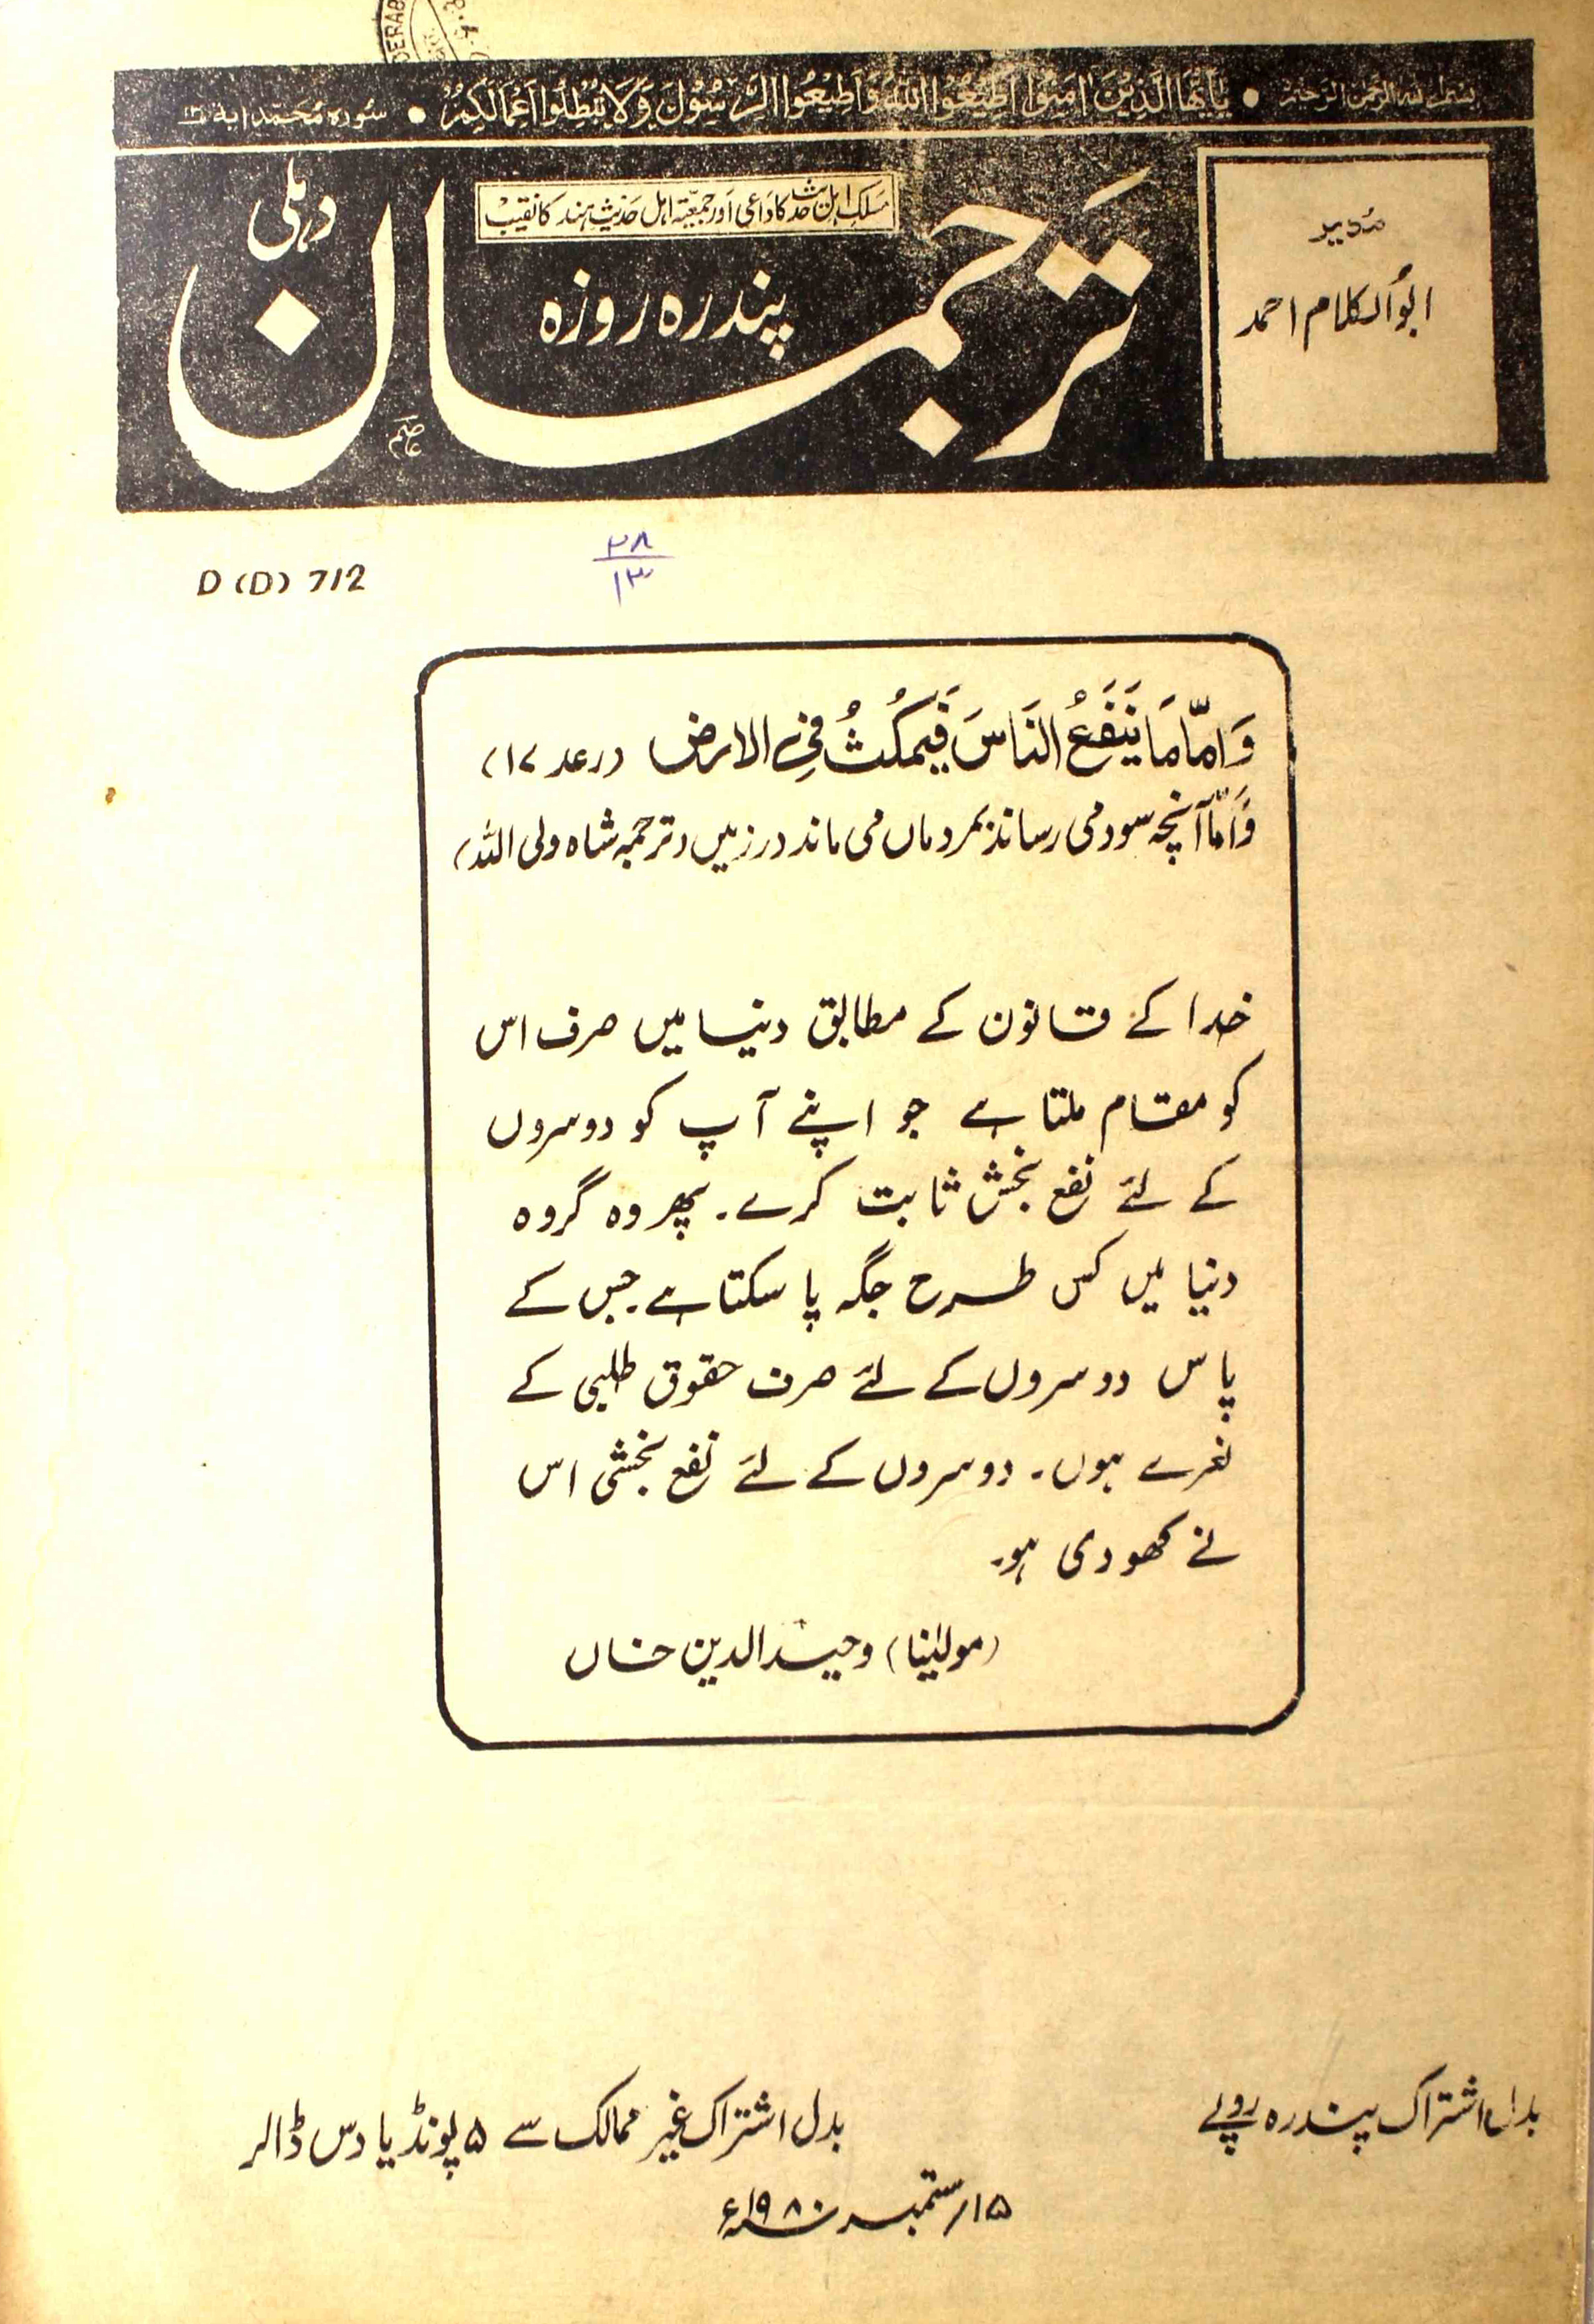 بسم الله الرحمن الرحیم • یٰۤاَیُّهَا الَّذِیْنَ اٰمَنُوْا اَطِیْعُوا اللّٰهَ وَاَطِیْعُوا الرَّسُوْلَ وَلَا تُبْطِلُوْا اَعْمَالَكُمْ • سُوره مُحَمّد اية
مُدیر
ابُوالکلام احمد
مسلک اہل حدیث کا داعی اور جمعیّتہ اہل حدیث ہند کا نقیب
دہلی
ترجمان
پندرہ روزہ
عاصم
۲۸
۱۳
D (D) 712
وَامّا مَا يَنَفَعُ النَاسَ فَيَمكُثُ فِي الارض (رعد ۱۷)
وَاَمّا آنچہ سود می رساند بمردماں می ماند در زمیں (ترجمہ شاہ ولی اللہ)
خدا کے قانون کے مطابق دنیا میں صرف اس
کو مقام ملتا ہے جو اپنے آپ کو دوسروں
کے لئے نفع بخش ثابت کرے۔ پھر وہ گروہ
دنیا میں کس طرح جگہ پا سکتا ہے۔ جس کے
پاس دوسروں کے لئے صرف حقوق طلبی کے
نعرے ہوں۔ دوسروں کے لئے نفع بخشی اس
نے کھو دی ہو۔
(مولیٰنا) وحیدالدین خاں
بدل اشتراک پندرہ روپے
بدل اشتراک غیر ممالک سے ۵ پونڈ یا دس ڈالر
۱۵ ؍ ستمبر ۱۹۸۰ء